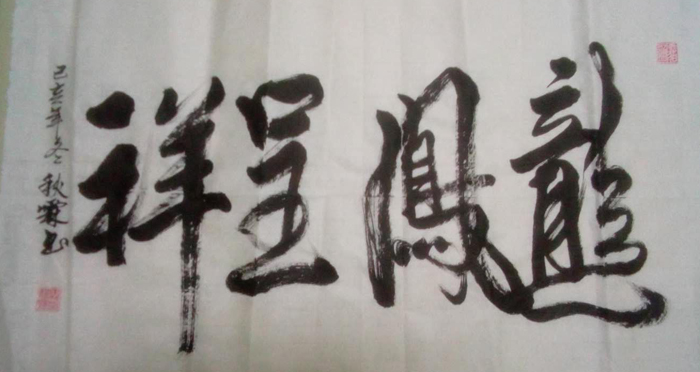 龍鳳呈祥
己亥年冬秋霖书